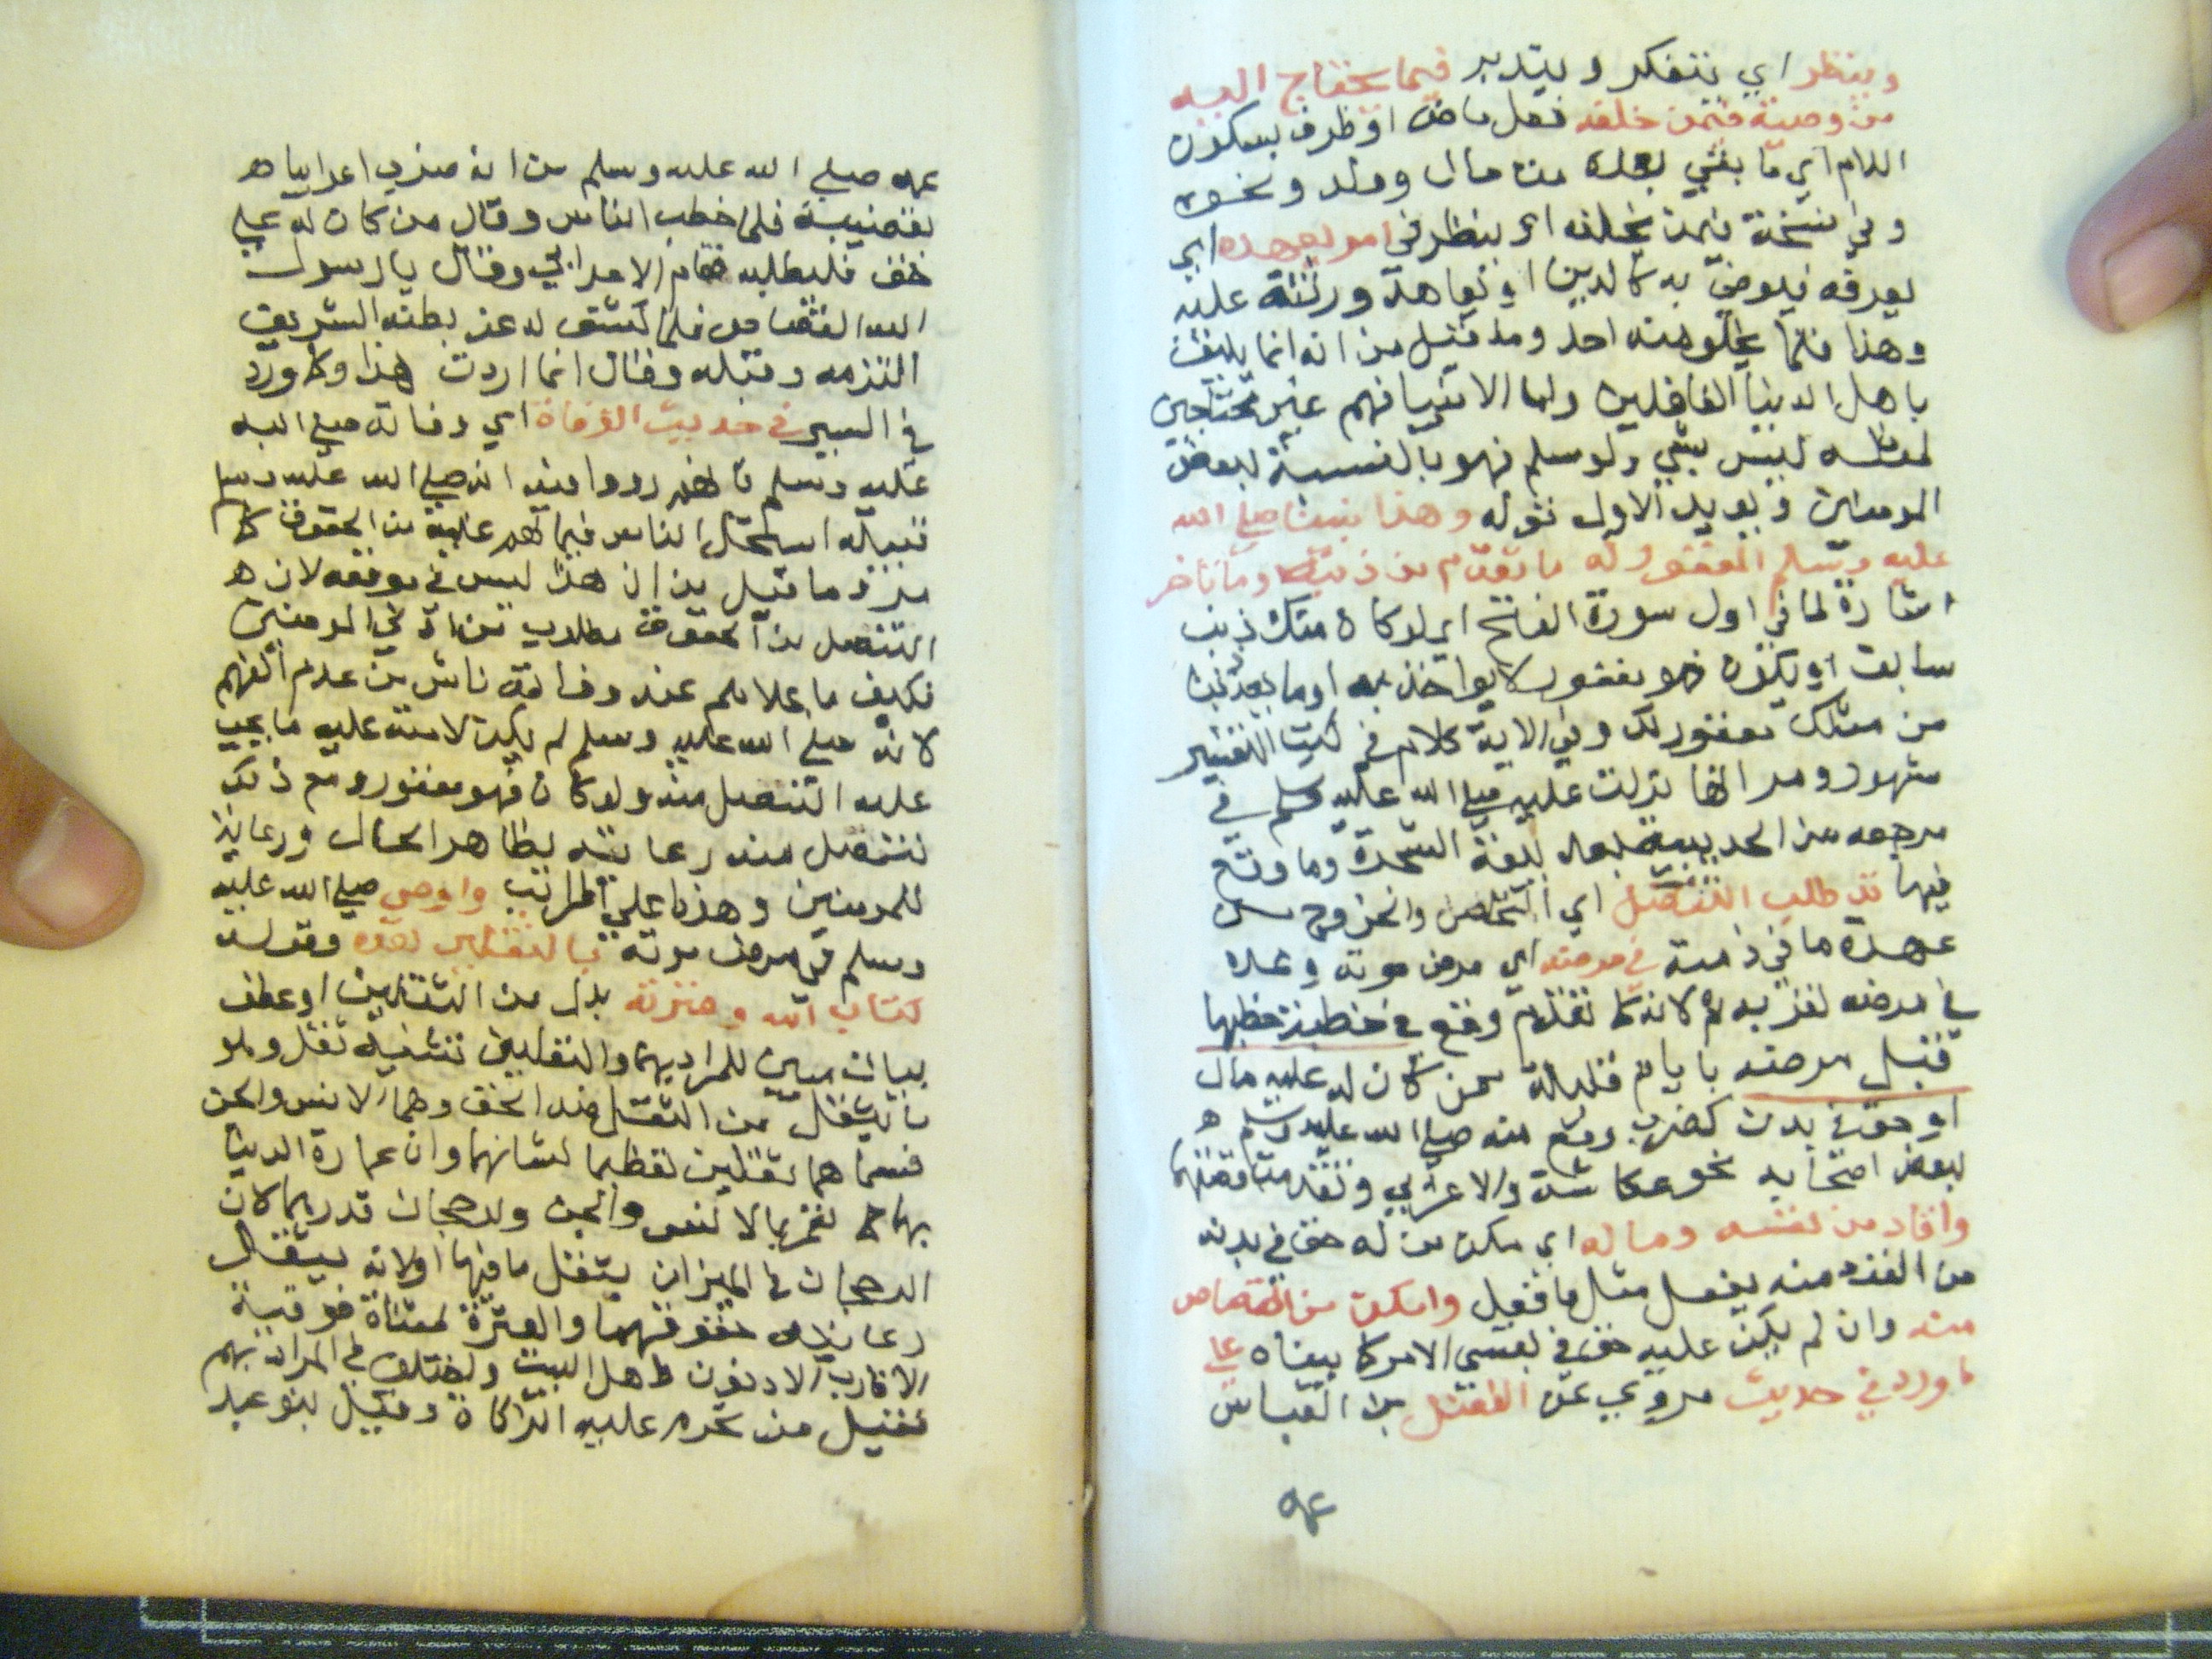 وينظر اي يتفكر ويتدبر فيما يحتاج اليه
من وصية فيمن خلفه فعل ماض او ظرف بسكون
اللام اي ما بقي بعده من مال وولد ونحوه
وفي نسخة فيمن يخلفه او ينظر في امر يعهده اي
يعرفه فيوصي به كالدين او تعاهد ورثته عليه
وهذا قلما يخلو منه احد وما قيل من انه انما يليق
باهل الدنيا الغافلين واما الانبيا فهم غير محتاجين
لمثله ليس بشي ولو سلم فهو بالنسبة لبعض
المومنين ويويد الاول قوله وهذا نبينا صلي الله
عليه وسلم المغفور له ما تقدم من ذنبه وما تاخر
اشارة لما في اول سورة الفتح اي لو كان منك ذنب
سابق او يكون فهو مغفور لا يواخذ به او ما يعد ذنبا
من مثلك مغفور لك وفي الاية كلام في كتب التفسير
مشهور ومر انها نزلت عليه صلي الله عليه وسلم في
مرجعه من الحديبية بعد بيعة الشجرة وما وقع
فيها قد طلب التنصل اي التخلص والخروج من
عهدة ما في ذمته في مرضه اي مرض موته وعده
في مرضه لقربه لانه كما تقدم وقع في خطبة خطبها
قبل مرضه بايام قليلة ممن كان له عليه مال
او حق في بدن كضرب وقع منه صلي الله عليه وسلم ه
لبعض اصحابه نحو عكاشة والاعرابي وتقدمت قصتهما
واقاد من نفسه وماله اي مكن من له حق في بدنه
من القود منه بفعل مثل ما فعل وامكن من القصاص
منه وان لم يكن عليه حق في نفس الامر كما بيناه علي
ما ورد في حديث مروي عن الفضل بن العباس
عنه
عنه صلي الله عليه وسلم من انه ضرب اعرابيا ه
بقضيبه فلما خطب الناس وقال من كان له علي
حق فليطلبه فقام الاعرابي وقال يا رسول
الله القصاص فلما كشف له عن بطنه الشريف
التزمه وقبله وقال انما اردت هذا وكما ورد
في السير في حديث الوفاة اي وفاته صلي الله
عليه وسلم فانهم رووا فيه انه صلي الله عليه وسلم
قبيله استحل الناس فيما لهم عليه من الحقوق كما
مر وما قيل من ان هذا ليس في موقعه لان ه
التنصل من الحقوق مطلوب من ادني المومنين
فكيف باعلاهم عند وفاته ناش من عدم الفهم
لانه صلي الله عليه وسلم لم يكن لامته عليه ما يجب
عليه التنصل منه ولو كان فهو مغفور ومع ذلك
تنصل منه رعاية لظاهر الحال ورعاية
للمومنين وهذا اعلي المراتب واوصي صلي الله عليه
وسلم في مرض موته بالثقلين بعده وقوله
كتاب الله وعترته بدل من الثقلين او عطف
بيان مبين للمراد بهما والثقلين تثنية ثقل وهو
ما يثقل من الثقل ضد الخف وهما الانس والجن
فسماهما ثقلين تعظيما لشانهما وان عمارة الدنيا
بهما كما تعمر بالانس والجن ولرجحان قدرهما لان
الرجحان في الميزان بثقل ما فيها او لانه يثقل
رعاية حقوقهما والعترة بمثناة فوقية
الاقارب الادنون اهل البيت واختلف في المراد بهم
فقيل من تحرم عليه الزكاة وقيل بنو عبد